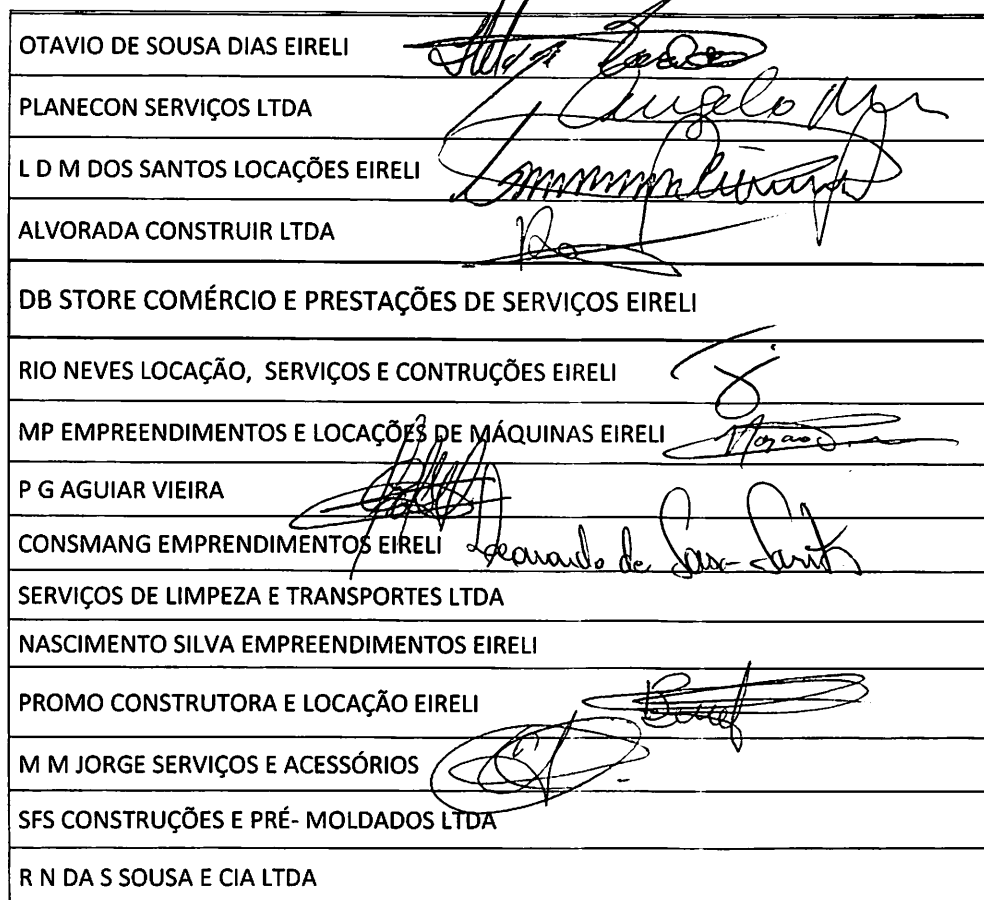 OTAVIO DE SOUSA DIAS EIRELI
PLANECON SERVIÇOS LTDA Angelo
L D M DOS SANTOS LOCAÇÕES EIRELI
ALVORADA CONSTRUIR LTDA
DB STORE COMÉRCIO E PRESTAÇÕES DE SERVIÇOS EIRELI
RIO NEVES LOCAÇÃO, SERVIÇOS E CONTRUÇÕES EIRELI
MP EMPREENDIMENTOS E LOCAÇÕES DE MÁQUINAS EIRELI
P G AGUIAR VIEIRA
CONSMANG EMPRENDIMENTOS EIRELI Leonardo de
SERVIÇOS DE LIMPEZA E TRANSPORTES LTDA
NASCIMENTO SILVA EMPREENDIMENTOS EIRELI
PROMO CONSTRUTORA E LOCAÇÃO EIRELI
M M JORGE SERVIÇOS E ACESSÓRIOS
SFS CONSTRUÇÕES E PRÉ- MOLDADOS LTDA
R N DA S SOUSA E CIA LTDA